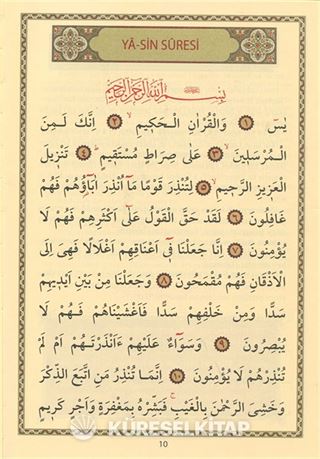 YÂ-SİN SÛRESİ
بِسْمِ اللّٰهِ الرَّحْمٰنِ الرَّحِيمِ
يٰسٓ ﴿١﴾ وَالْقُرْاٰنِ الْحَكِيمِ ﴿٢﴾ اِنَّكَ لَمِنَ
الْمُرْسَلِينَ ﴿٣﴾ عَلٰى صِرَاطٍ مُسْتَقِيمٍ ﴿٤﴾ تَنْزِيلَ
الْعَزِيزِ الرَّحِيمِ ﴿٥﴾ لِتُنْذِرَ قَوْمًا مَٓا اُنْذِرَ اٰبَٓاؤُ۬هُمْ فَهُمْ
غَافِلُونَ ﴿٦﴾ لَقَدْ حَقَّ الْقَوْلُ عَلٰٓى اَكْثَرِهِمْ فَهُمْ لَا
يُؤْمِنُونَ ﴿٧﴾ اِنَّا جَعَلْنَا فِٓى اَعْنَاقِهِمْ اَغْلَالًا فَهِىَ اِلَى
الْاَذْقَانِ فَهُمْ مُقْمَحُونَ ﴿٨﴾ وَجَعَلْنَا مِنْ بَيْنِ اَيْدِيهِمْ
سَدًّا وَمِنْ خَلْفِهِمْ سَدًّا فَاَغْشَيْنَاهُمْ فَهُمْ لَا
يُبْصِرُونَ ﴿٩﴾ وَسَوَٓاءٌ عَلَيْهِمْ ءَاَنْذَرْتَهُمْ اَمْ لَمْ
تُنْذِرْهُمْ لَا يُؤْمِنُونَ ﴿١٠﴾ اِنَّمَا تُنْذِرُ مَنِ اتَّبَعَ الذِّكْرَ
وَخَشِىَ الرَّحْمٰنَ بِالْغَيْبِ فَبَشِّرْهُ بِمَغْفِرَةٍ وَاَجْرٍ كَرِيمٍ
KÜRESELKİTAP
10